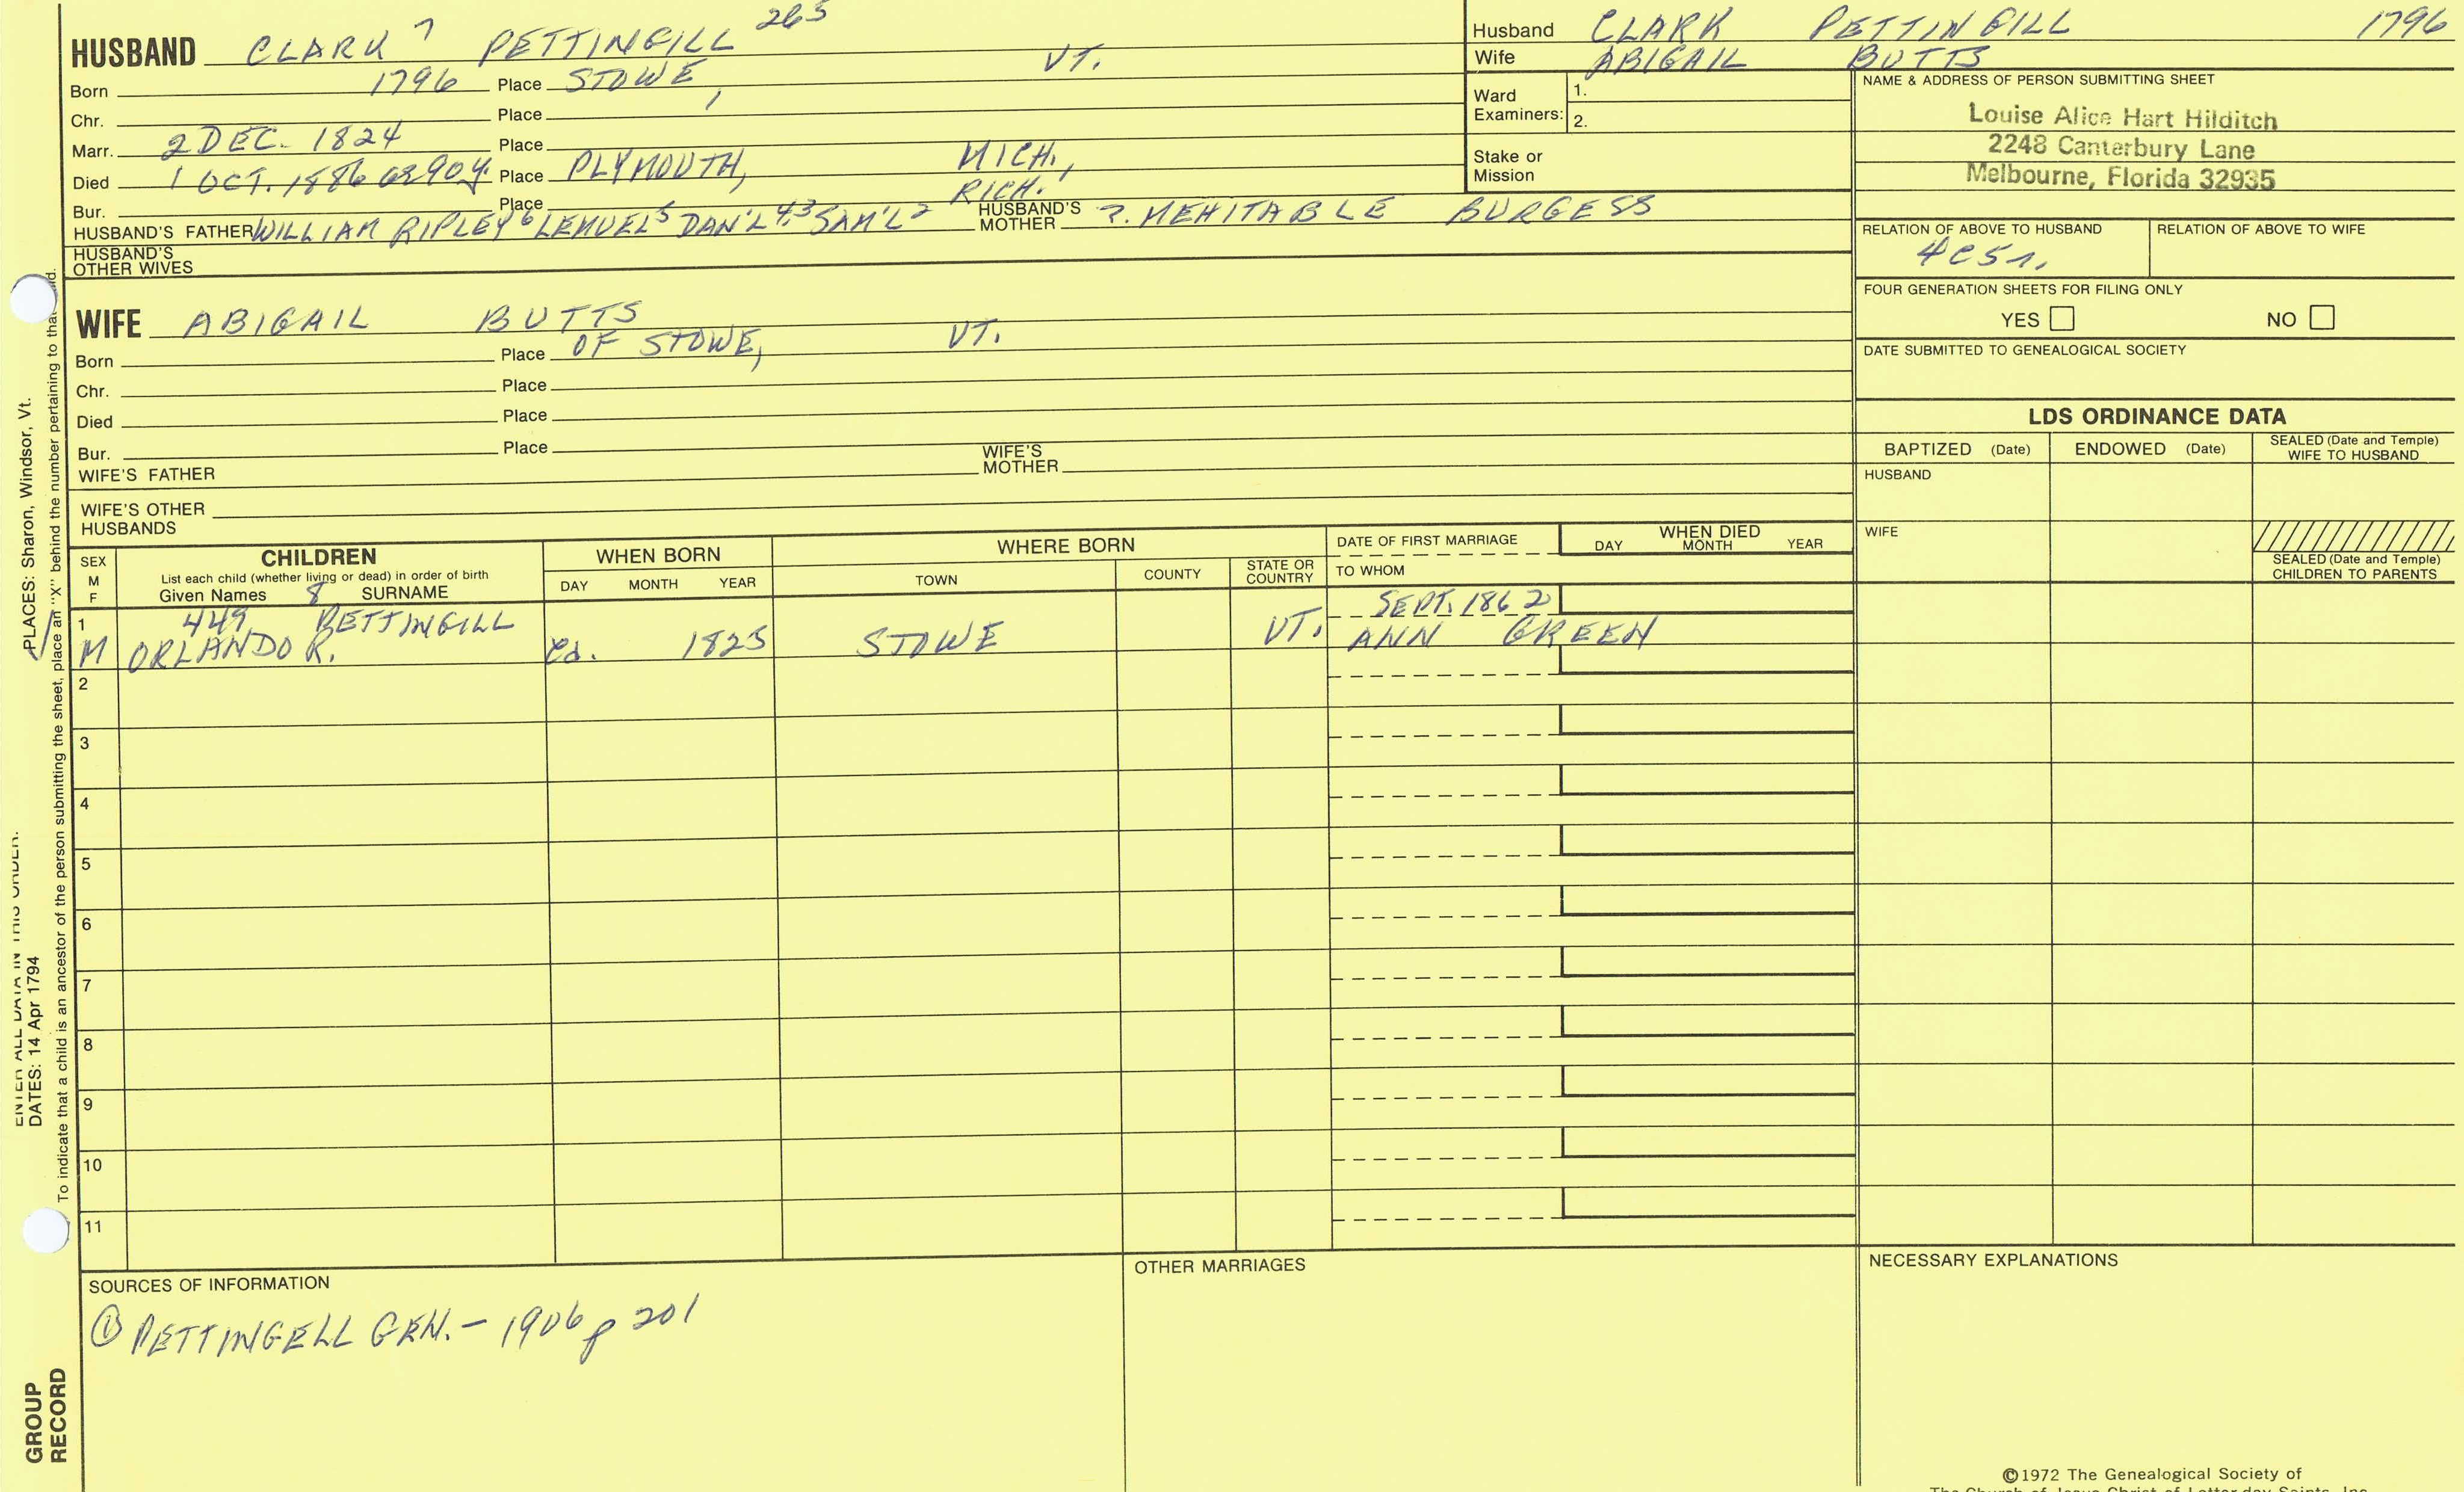 HUSBAND CLARK 7 PETTINGILL 265
Born 1796 Place STOWE, VT.
Chr. Place
Marr. 2 DEC. 1824 Place
Died 1 OCT. 1886 Place PLYMOUTH, MICH.,
Bur. Place RICH.
HUSBAND'S FATHER WILLIAM RIPLEY 6 LEMUEL 5 DAN'L 4,3 SAM'L 2 HUSBAND'S MOTHER ?. MEHITABLE BURGESS
HUSBAND'S OTHER WIVES
Husband CLARK PETTINGILL 1796
Wife ABIGAIL BUTTS
Ward Examiners: 1.
2.
Stake or Mission
NAME & ADDRESS OF PERSON SUBMITTING SHEET
Louise Alice Hart Hilditch
2248 Canterbury Lane
Melbourne, Florida 32935
RELATION OF ABOVE TO HUSBAND RELATION OF ABOVE TO WIFE
4C5r.
FOUR GENERATION SHEETS FOR FILING ONLY
YES NO
DATE SUBMITTED TO GENEALOGICAL SOCIETY
WIFE ABIGAIL BUTTS
Born Place OF STOWE, VT.
Chr. Place
Died Place
Bur. Place
WIFE'S FATHER WIFE'S MOTHER
WIFE'S OTHER HUSBANDS
LDS ORDINANCE DATA
BAPTIZED (Date) ENDOWED (Date) SEALED (Date and Temple) WIFE TO HUSBAND
HUSBAND
WIFE
SEALED (Date and Temple) CHILDREN TO PARENTS
SEX M F CHILDREN WHEN BORN WHERE BORN DATE OF FIRST MARRIAGE WHEN DIED
List each child (whether living or dead) in order of birth
Given Names 8 SURNAME DAY MONTH YEAR TOWN COUNTY STATE OR COUNTRY TO WHOM DAY MONTH YEAR
1 449 PETTINGILL SEPT. 1862
M ORLANDO R. 1825 STOWE VT. ANN GREEN
2
3
4
5
6
7
8
9
10
11
SOURCES OF INFORMATION
① PETTINGELL GEN. - 1906 p 201
OTHER MARRIAGES
NECESSARY EXPLANATIONS
©1972 The Genealogical Society of
The Church of Jesus Christ of Latter-day Saints, Inc.
PLACES: Sharon, Windsor, Vt.
ENTER ALL DATA IN THIS ORDER:
DATES: 14 Apr 1794
To indicate that a child is an ancestor of the person submitting the sheet, place an "X" behind the number pertaining to that child.
GROUP
RECORD